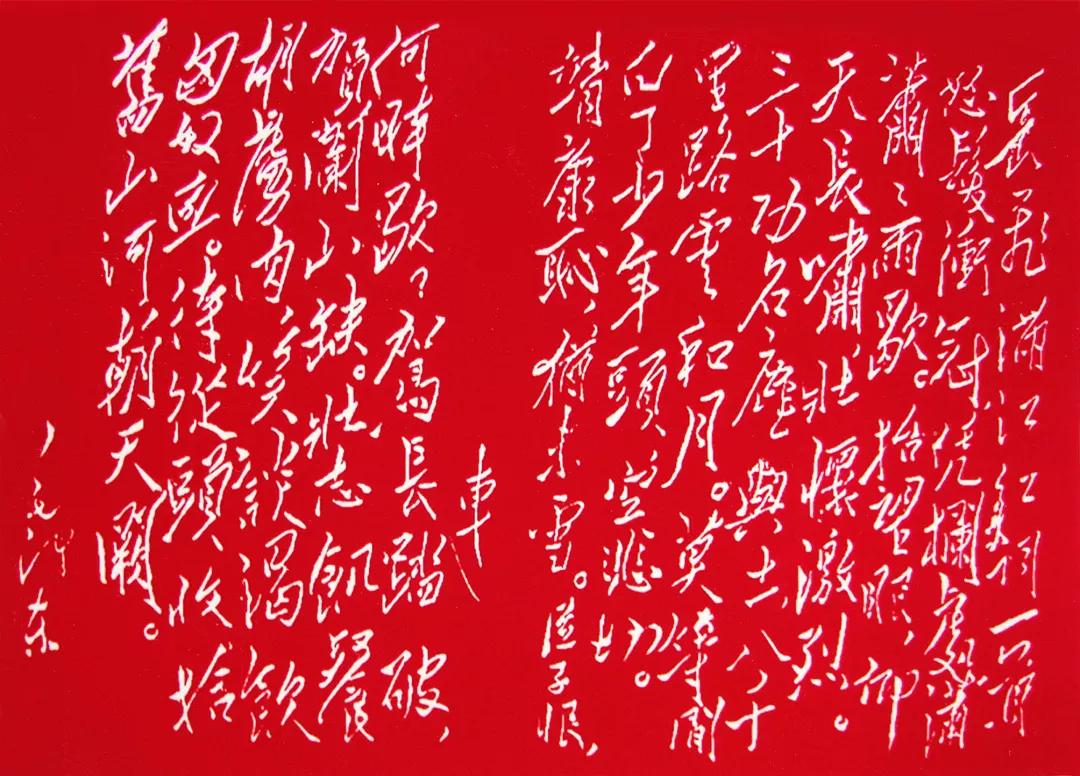 岳飛滿江紅詞一首
怒髮衝冠凭欄處瀟
瀟々雨歇。抬望眼、仰
天長嘯壯懷激烈。
三十功名塵與土八千
里路雲和月。莫等閒
白了少年頭空悲切。
靖康恥、猶未雪。臣子恨，
車
何時歇々駕長踏破，
賀蘭山缺。壯志飢餐
胡虜肉笑談渴飲
匈奴血。待從頭收拾
舊山河朝天闕。
毛澤東